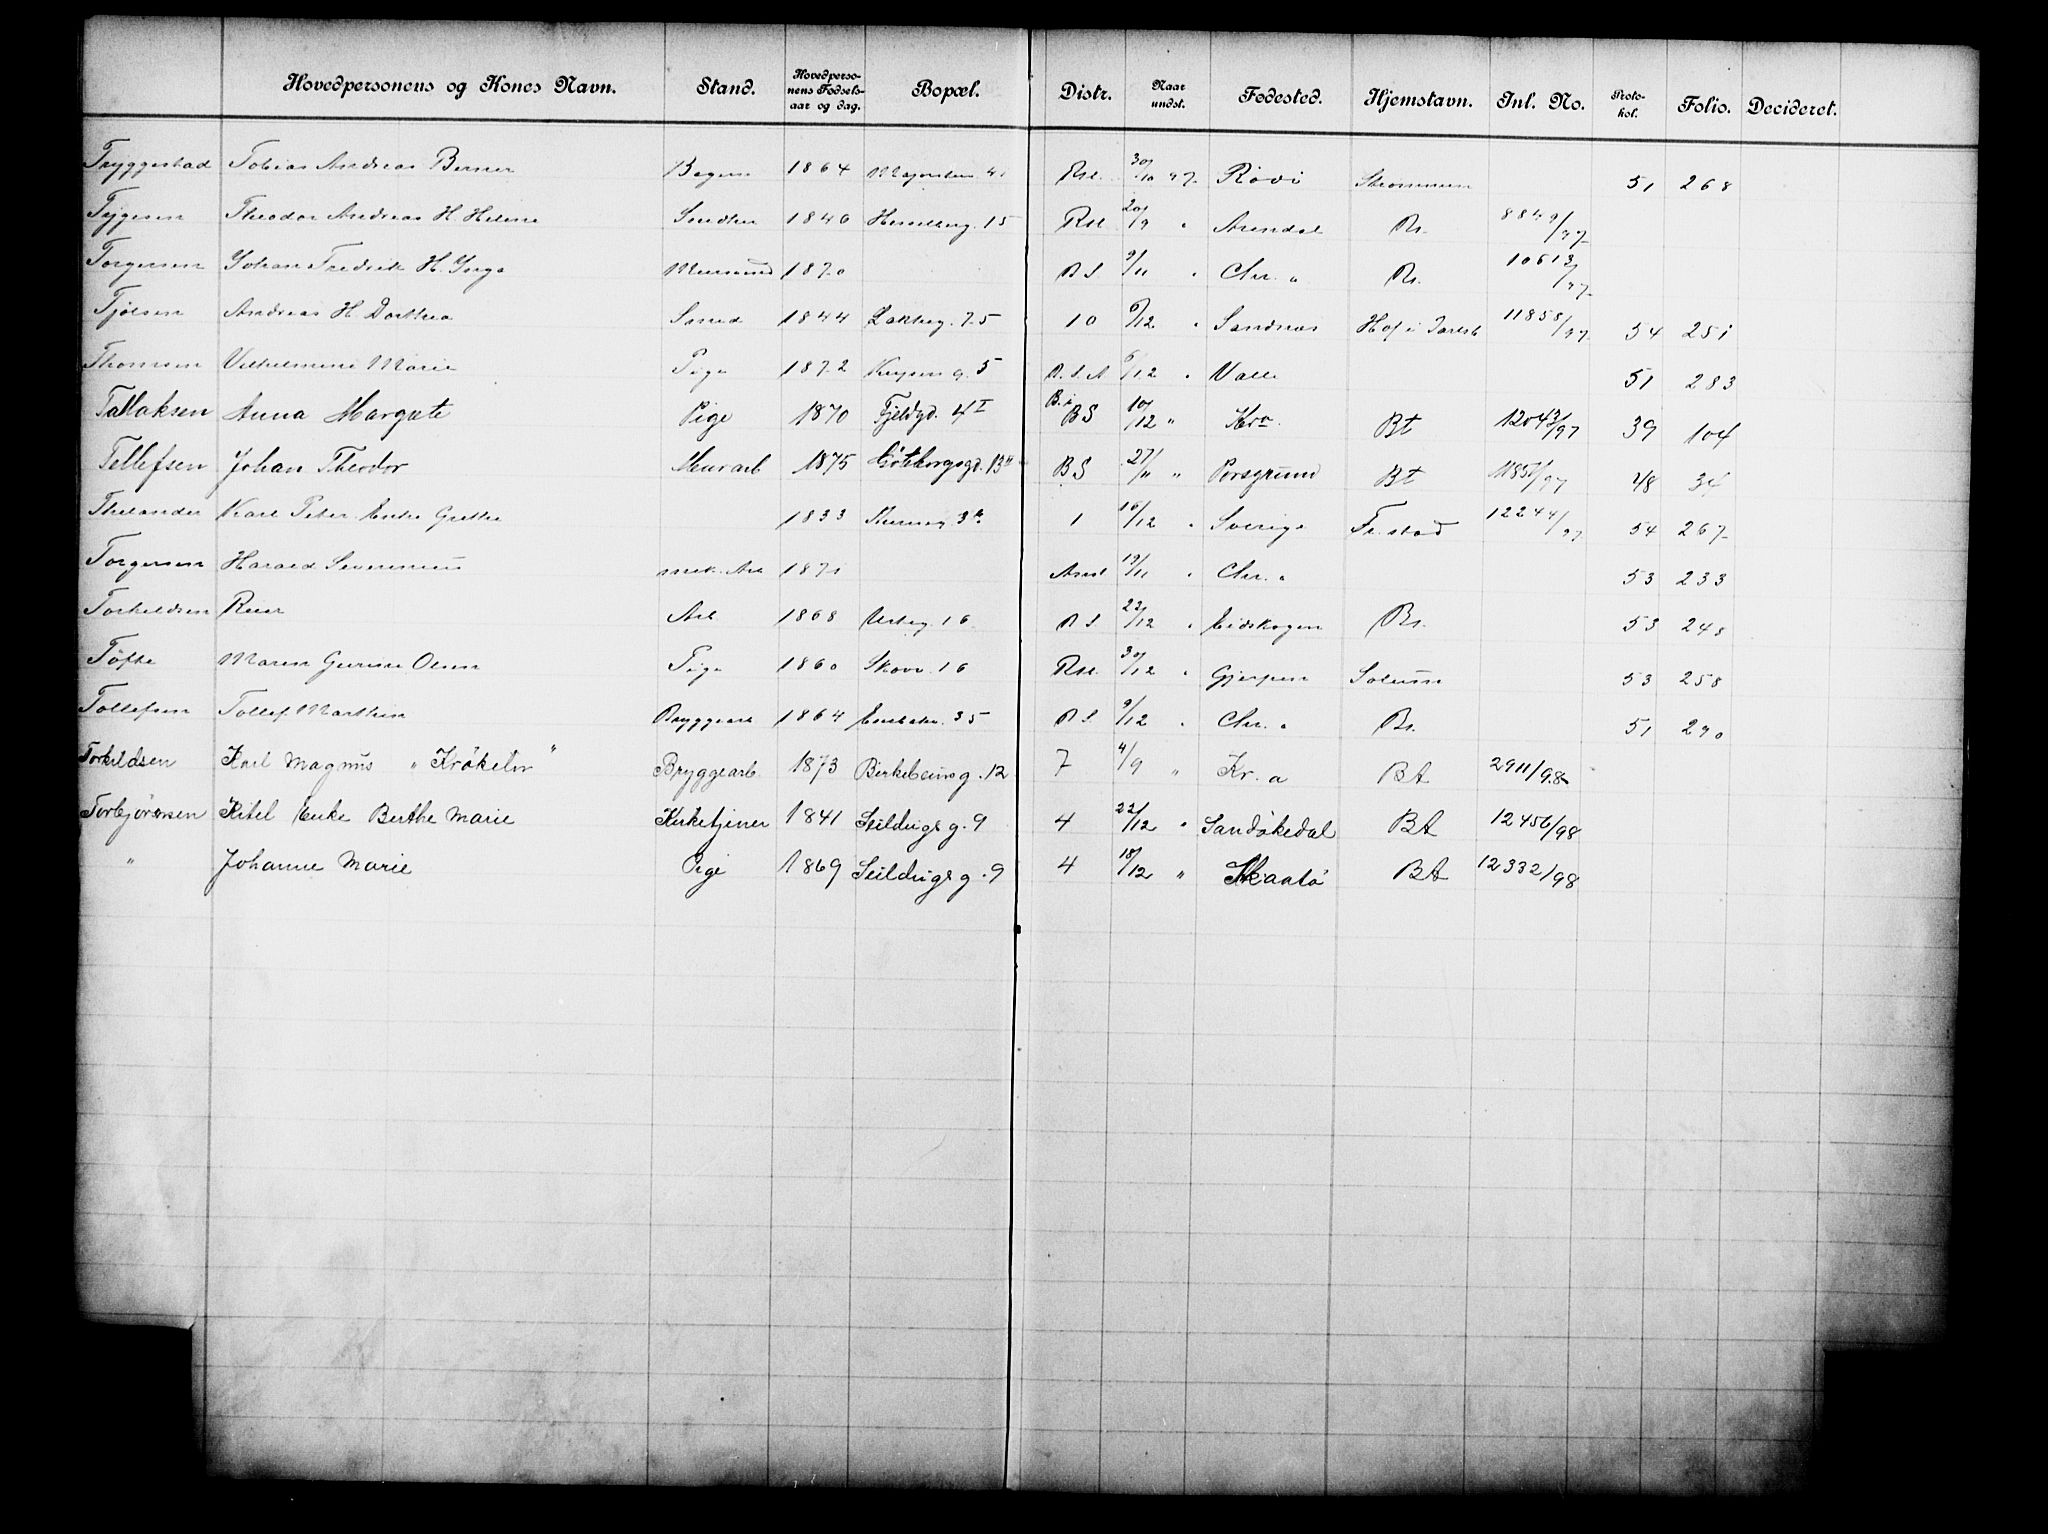 Hovedpersonens og Kones Navn. Stand. Hovedpersonens Fødselsaar og dag. Bopæl. Distr. Naar undst. Fødested. Hjemstavn. Inl. No. Protokol. Folio. Decideret.
Tryggestad Tobias Andreas Berner 1864 Rst. 30/10 97 Strømmen 51 268
Theodor Andreas H. Helene 1846 15 Rst. 20/9 " Arendal Bt. 8849/97
Torgersen Johan Fredrik H. Inga 1870 B S 9/11 " Chr. a Bt. 10613/97
Tjølsen Andreas H. Dorthea Smed 1844 10 6/12 " Sandnæs Hof i Jarlsb 11858/97 34 251
Thomsen Vilhelmine Marie Pige 1872 5 6/12 " Valle 51 283
Tallaksen Anna Margrete Pige 1870 Fjeldgd. 4 I BS 10/12 " Kra. Bt 12043/97 39 104
Tellefsen Johan Theodor Murarb 1875 Göteborgsgd. 13 II BS 27/11 " Porsgrund Bt 11851/97 48 34
Thelander Karl Peter Enke Grethe 1833 1 16/12 " Sverige Fr.stad 12244/97 54 267
Torgersen Harald Severinius mek. Arb 1871 19/11 " Chr. a 53 233
Torkildsen Reier Arb 1868 16 B S 22/12 " Eidskogen Bt. 53 248
Tøfte Maren Gurine Olsen Pige 1860 Skovv. 16 Rst. 30/12 " Gjerpen Solum 53 258
Tollefsen Tollef Marthin Bryggearb 1864 35 B S. 9/12 " Chr. a Bt. 51 290
Torkildsen Karl Magnus " Kröketor " Bryggearb. 1873 Birkebeinerg. 12 7 4/9 " Kr. a Bt 2911/98
Torbjörnsen Kitel Enke Berthe Marie Kirketjener 1841 Seildugsg. 9 4 22/12 " Sandökedal Bt 12456/98
" Johanne Marie Pige 1869 Seildugsg. 9 4 18/12 " Skaatö Bt 12332/98